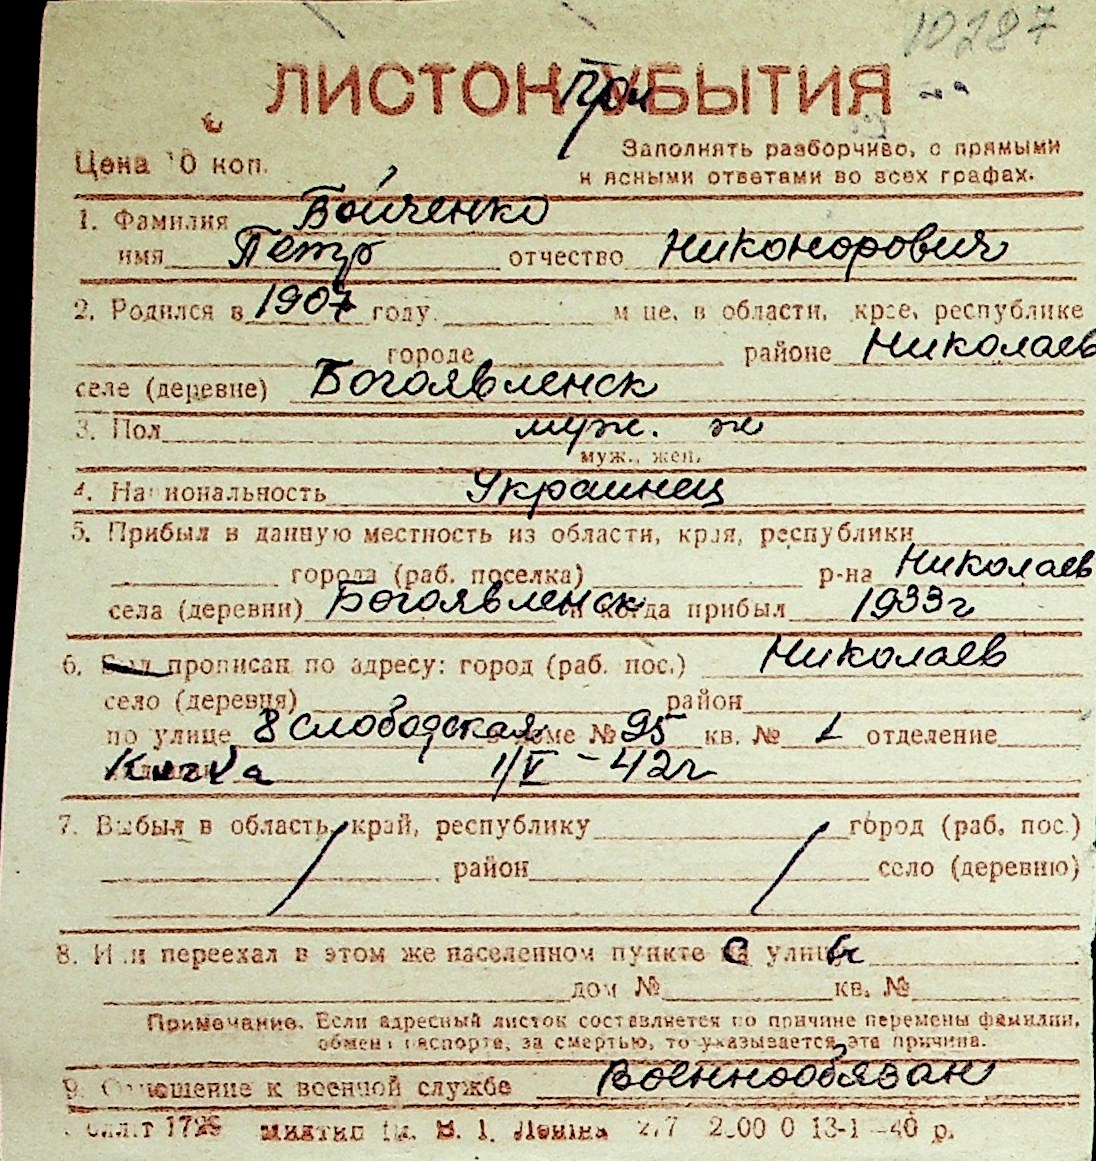 10287
ЛИСТОК УБЫТИЯ
При
Цена 10 коп.
Заполнять разборчиво, с прямыми
и ясными ответами во всех графах.
1. Фамилия Бойченко
имя Петр отчество Никонорович
2. Родился в 1907 году м-це, в области, крае, республике
городе районе Николаев
селе (деревне) Богоявленск
3. Пол муж. ж
муж., жен.
4. Национальность Украинец
5. Прибыл в данную местность из области, края, республики
города (раб. поселка) р-на Николаев
села (деревни) Богоявленск и когда прибыл 1933 г
6. Был прописан по адресу: город (раб. пос.) Николаев
село (деревня) район
по улице 8 слободская в доме № 95 кв. № 1 отделение
1/V - 42 г
7. Выбыл в область, край, республику город (раб. пос.)
район село (деревню)
8. Или переехал в этом же населенном пункте с улицы
дом № кв. №
Примечание. Если адресный листок составляется по причине перемены фамилии,
обмена паспорта, за смертью, то указывается эта причина.
9. Отношение к военной службе военнообязан
В. І. Леніна 13-1 -40 р.